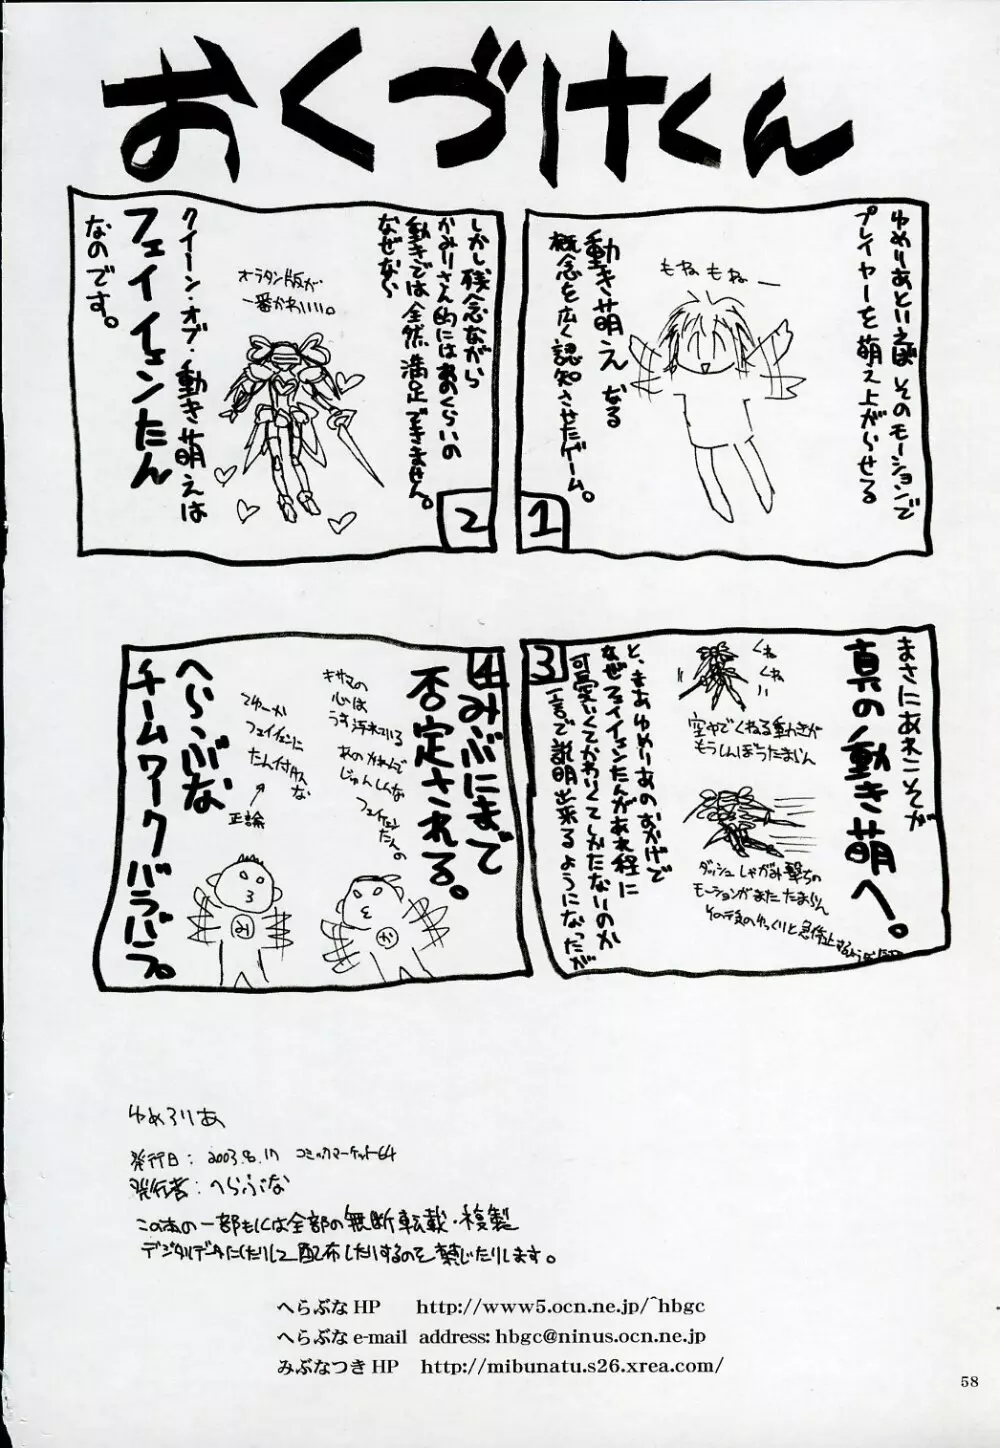 おくづけくん
ゆめりあといえば そのモーションで
プレイヤーを萌え上がらせる
もね もね ー
動き萌え なる
概念を広く認知させたゲーム。
1
しかし残念ながら
かみりさん的にはあのくらいの
動きでは全然、満足できません。
なぜなら
オラタン版が
一番かわいい。
クイーン・オブ・動き萌えは
フェイイェンたん
なのです。
2
まさにあれこそが
真の動き萌へ。
くね
くね
空中でくねる動きが
もうしんぼうたまらん
ダッシュしゃがみ撃ちの
モーションがまたたまらん
と、まあゆめりあのおかげで
なぜフェイイェンたんがあれ程に
可愛いくてかわいくてしかたないのか
一言で説明出来るようになったが
3
4
みぶにまで
否定される。
キサマの
心は
うす汚れている
あのかれんで
じゅんしんな
フェイイェンたんの
てゆーか
フェイイェンに
たん付けスな
正論
み
か
へらぶな
チームワークバラバラ。
ゆめろりあ
発行日：2003.8.17 コミックマーケット64
発行者：へらぶな
この本の一部もしくは全部の無断転載・複製
デジタルデータにしたりして配布したりするのを禁じたりします。
へらぶなHP http://www5.ocn.ne.jp/~hbgc
へらぶなe-mail address: hbgc@ninus.ocn.ne.jp
みぶなつきHP http://mibunatu.s26.xrea.com/
58